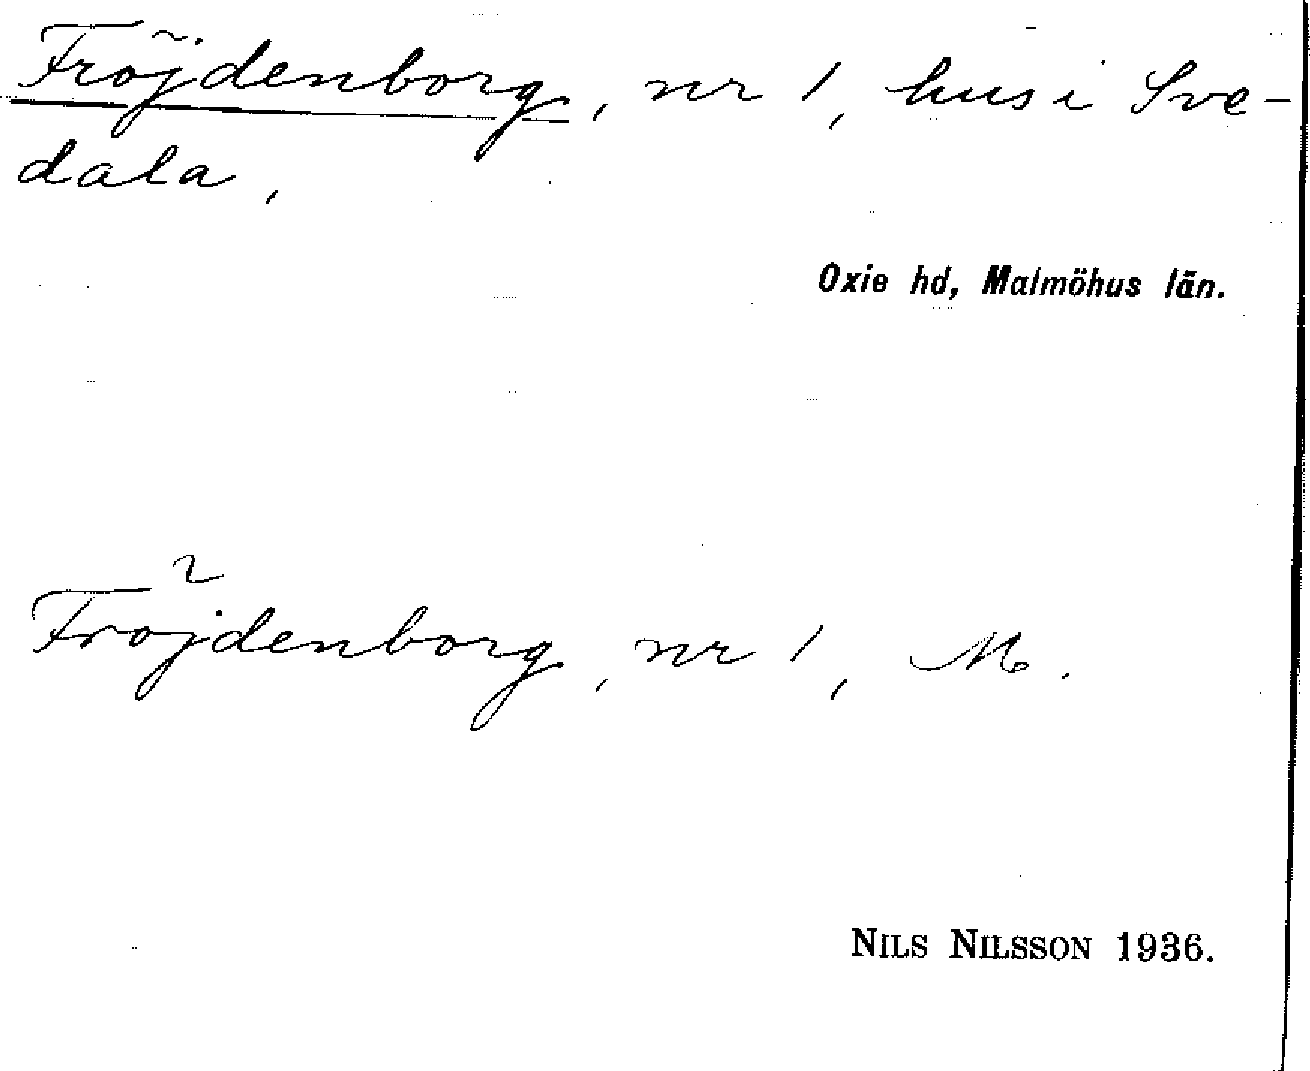 Fröjdenborg, nr 1, hus i Sve-
dala,
Oxie hd, Malmöhus län.
Fröjdenborg, nr 1, M.
NILS NILSSON 1936.